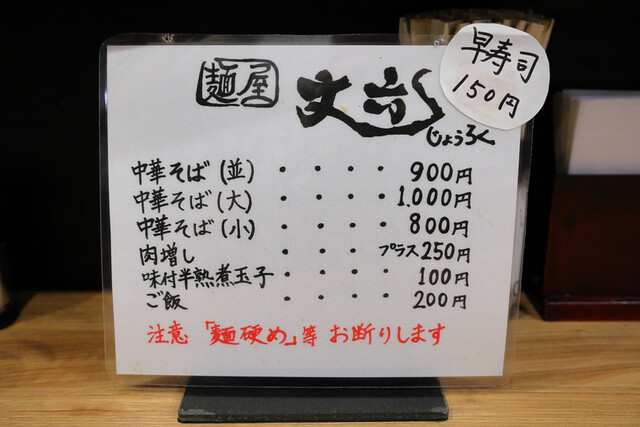 麺屋 丈六
じょうろく
早寿司
150円
中華そば(並)・・・・900円
中華そば(大)・・・・1.000円
中華そば(小)・・・・800円
肉増し・・・・プラス250円
味付半熟煮玉子・・・・100円
ご飯・・・・200円
注意「麺硬め」等 お断りします